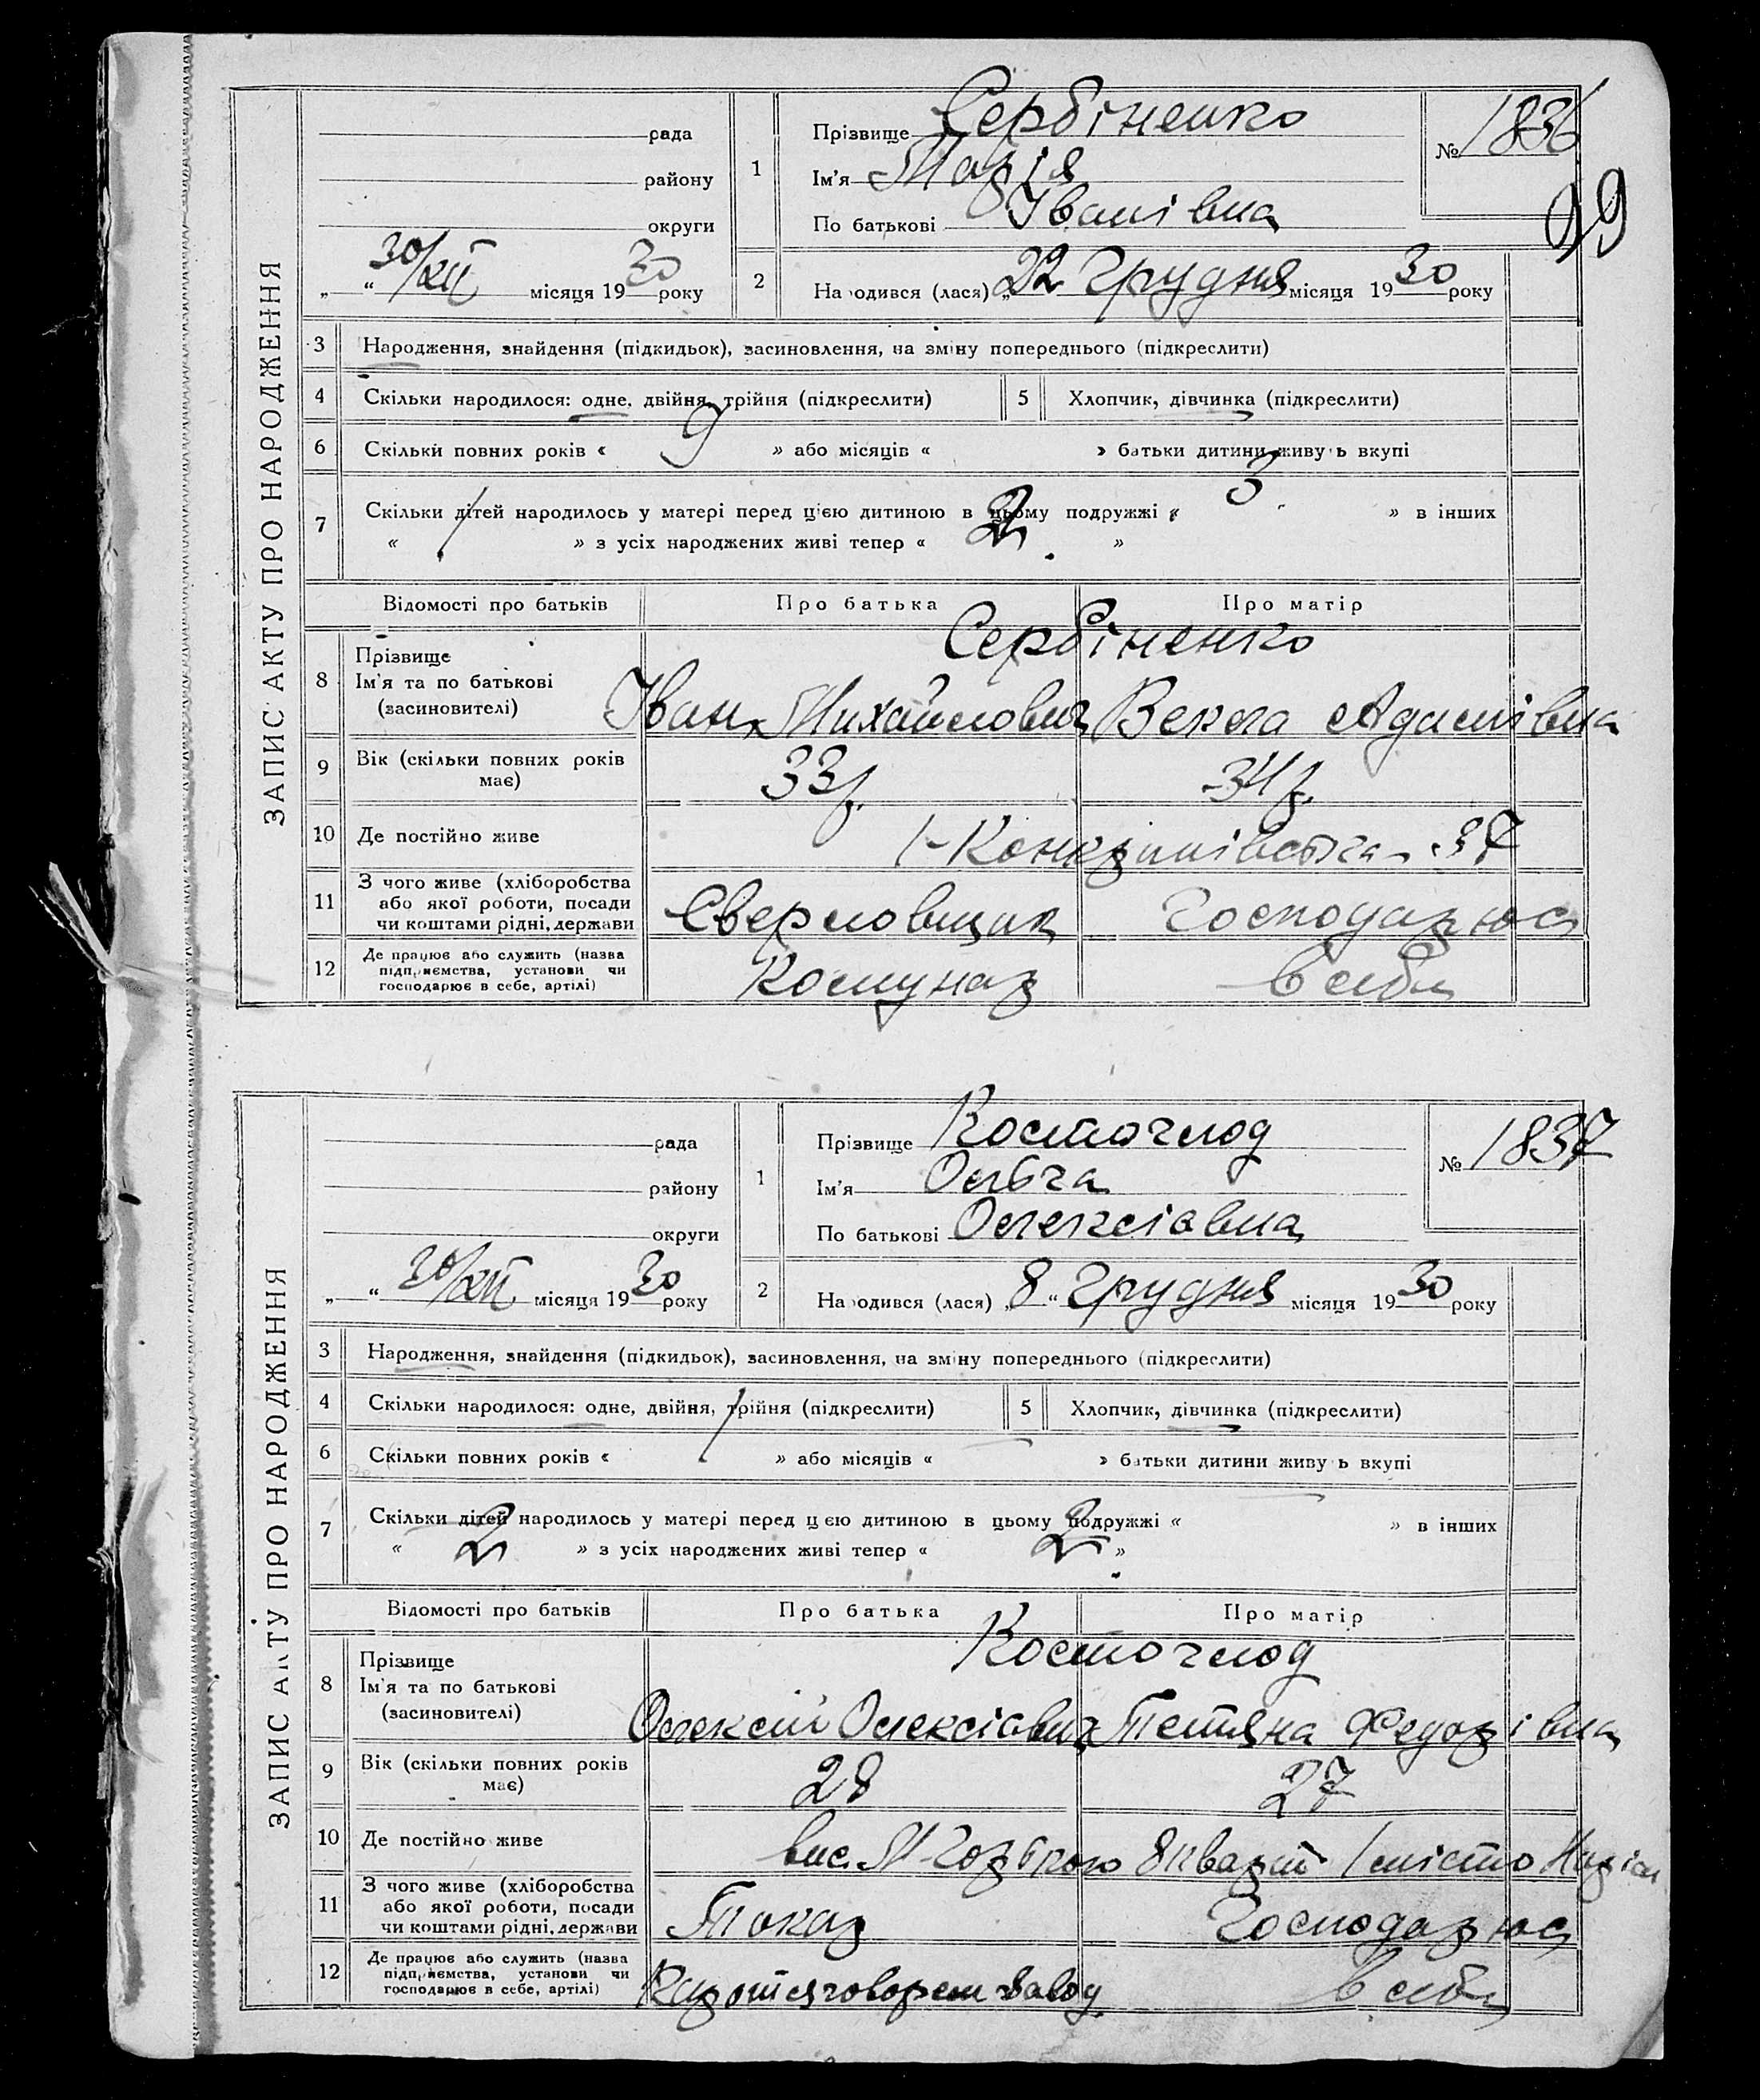 ЗАПИС АКТУ ПРО НАРОДЖЕННЯ
рада
району
округи
„ “ 30/XII місяця 1930 року
1
Прізвище Сербіненко
Ім'я Марія
По батькові Іванівна
№ 1836
99
2
Народився (лася) „22 Грудня місяця 1930 року
3 Народження, знайдення (підкидьок), засиновлення, на зміну попереднього (підкреслити)
4 Скільки народилося: одне, двійня, трійня (підкреслити) 5 Хлопчик, дівчинка (підкреслити)
6 Скільки повних років « 9 » або місяців « » батьки дитини живуть вкупі
7 Скільки дітей народилось у матері перед цією дитиною в цьому подружжі « 3 » в інших
« 1 » з усіх народжених живі тепер « 2 »
Відомості про батьків Про батька Про матір
8 Прізвище Ім'я та по батькові (засиновителі)
Сербіненко
Іван Михайлович Векла Адамівна
9 Вік (скільки повних років має) 33 р. 34 р.
10 Де постійно живе 37
11 З чого живе (хліборобства або якої роботи, посади чи коштами рідні, держави Сверловщик Господарює
12 Де працює або служить (назва підприємства, установи чи господарює в себе, артілі) Комунар в себе
ЗАПИС АКТУ ПРО НАРОДЖЕННЯ
рада
району
округи
„ “ 30/XII місяця 1930 року
1
Прізвище Костоглод
Ім'я Ольга
По батькові Олексіавна
№ 1837
2
Народився (лася) „8“ Грудня місяця 1930 року
3 Народження, знайдення (підкидьок), засиновлення, на зміну попереднього (підкреслити)
4 Скільки народилося: одне, двійня, трійня (підкреслити) 5 Хлопчик, дівчинка (підкреслити)
6 Скільки повних років « 1 » або місяців « — » батьки дитини живуть вкупі
7 Скільки дітей народилось у матері перед цією дитиною в цьому подружжі « — » в інших
« 2 » з усіх народжених живі тепер « 2 »
Відомості про батьків Про батька Про матір
8 Прізвище Ім'я та по батькові (засиновителі)
Костоглод
Олексій Олексіавич Тетяна Федорівна
9 Вік (скільки повних років має) 28 27
10 Де постійно живе вис. М-Горького 8 кварт 1 місто
11 З чого живе (хліборобства або якої роботи, посади чи коштами рідні, держави Токар Господарює
12 Де працює або служить (назва підприємства, установи чи господарює в себе, артілі) завод в себе